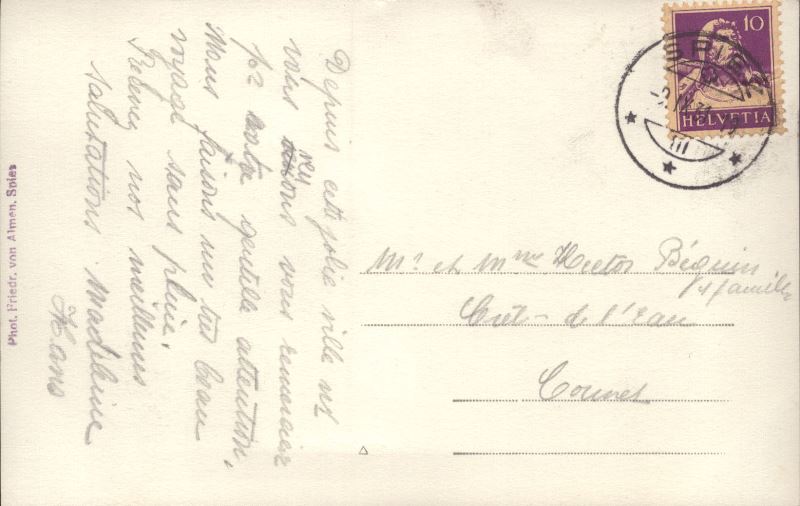 Depuis cette jolie ville ns
vous
res
vous remercier
pr votre gentille attention.
Nous faisons un très beau
voyage sans pluie.
Recevez nos meilleures
salutations Madeleine
Hans
Mr et Mme Hector Béguin
& famille
Crêt-de-l'Eau
Couvet
10
HELVETIA
SPIEZ
III
Phot. Friedr. von Almen, Spiez